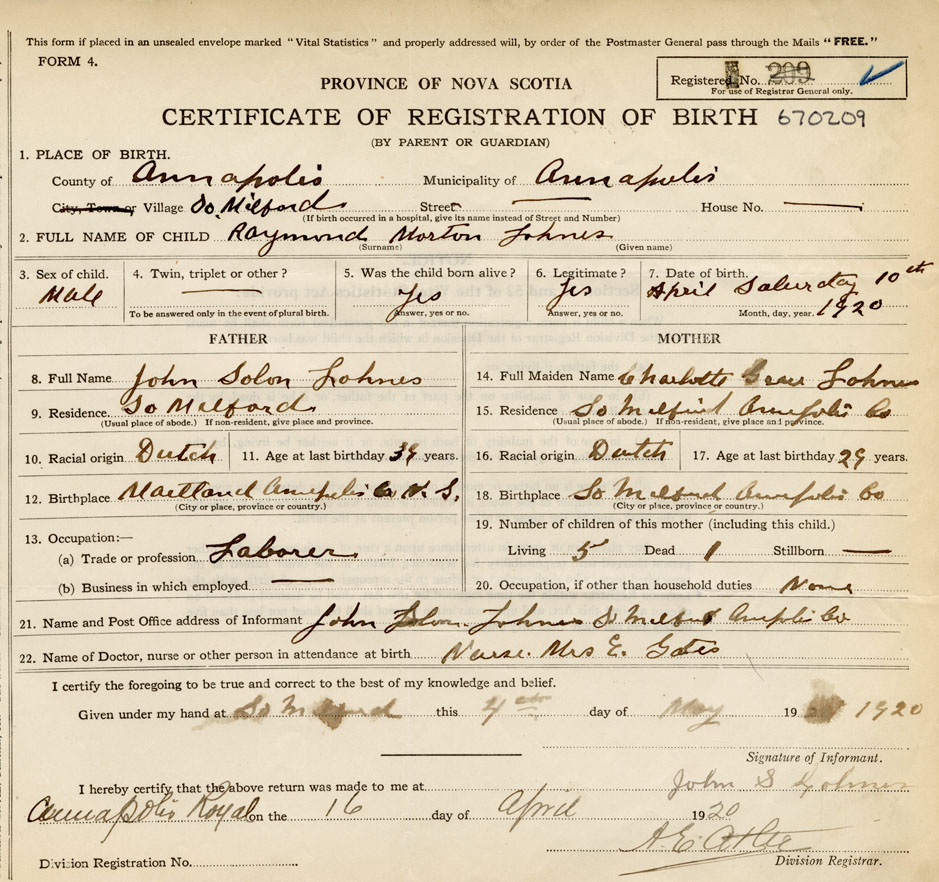 This form if placed in an unsealed envelope marked "Vital Statistics" and properly addressed will, by order of the Postmaster General pass through the Mails "FREE."
FORM 4.
Registered No. 209
For use of Registrar General only.
PROVINCE OF NOVA SCOTIA
CERTIFICATE OF REGISTRATION OF BIRTH 670209
(BY PARENT OR GUARDIAN)
1. PLACE OF BIRTH.
County of Annapolis Municipality of Annapolis
City, Town or Village So Milford Street — House No. —
(If birth occurred in a hospital, give its name instead of Street and Number)
2. FULL NAME OF CHILD Raymond Morton Lohnes
(Surname) (Given name)
3. Sex of child. 4. Twin, triplet or other? 5. Was the child born alive? 6. Legitimate? 7. Date of birth.
Male — Yes Yes April Saturday 10th
To be answered only in the event of plural birth. Answer, yes or no. Answer, yes or no. Month, day, year. 1920
FATHER MOTHER
8. Full Name John Solon Lohnes 14. Full Maiden Name Charlotte Grace Lohnes
9. Residence So Milford 15. Residence So Milford Annapolis Co
(Usual place of abode.) If non-resident, give place and province. (Usual place of abode.) If non-resident, give place and province.
10. Racial origin Dutch 11. Age at last birthday years. 16. Racial origin Dutch 17. Age at last birthday 29 years.
12. Birthplace Maitland Annapolis Co N. S. 18. Birthplace So Milford Annapolis Co
(City or place, province or country.) (City or place, province or country.)
19. Number of children of this mother (including this child.)
13. Occupation:—
(a) Trade or profession Laborer Living 5 Dead 1 Stillborn —
(b) Business in which employed — 20. Occupation, if other than household duties None
21. Name and Post Office address of Informant John Solon Lohnes So Milford Annapolis Co
22. Name of Doctor, nurse or other person in attendance at birth Nurse. Mrs E. Gates
I certify the foregoing to be true and correct to the best of my knowledge and belief.
Given under my hand at So Milford this 4th day of May 19 1920
Signature of Informant.
I hereby certify that the above return was made to me at John S Lohnes
Annapolis Royal on the 16 day of April 1920
A. E.
Division Registration No. Division Registrar.